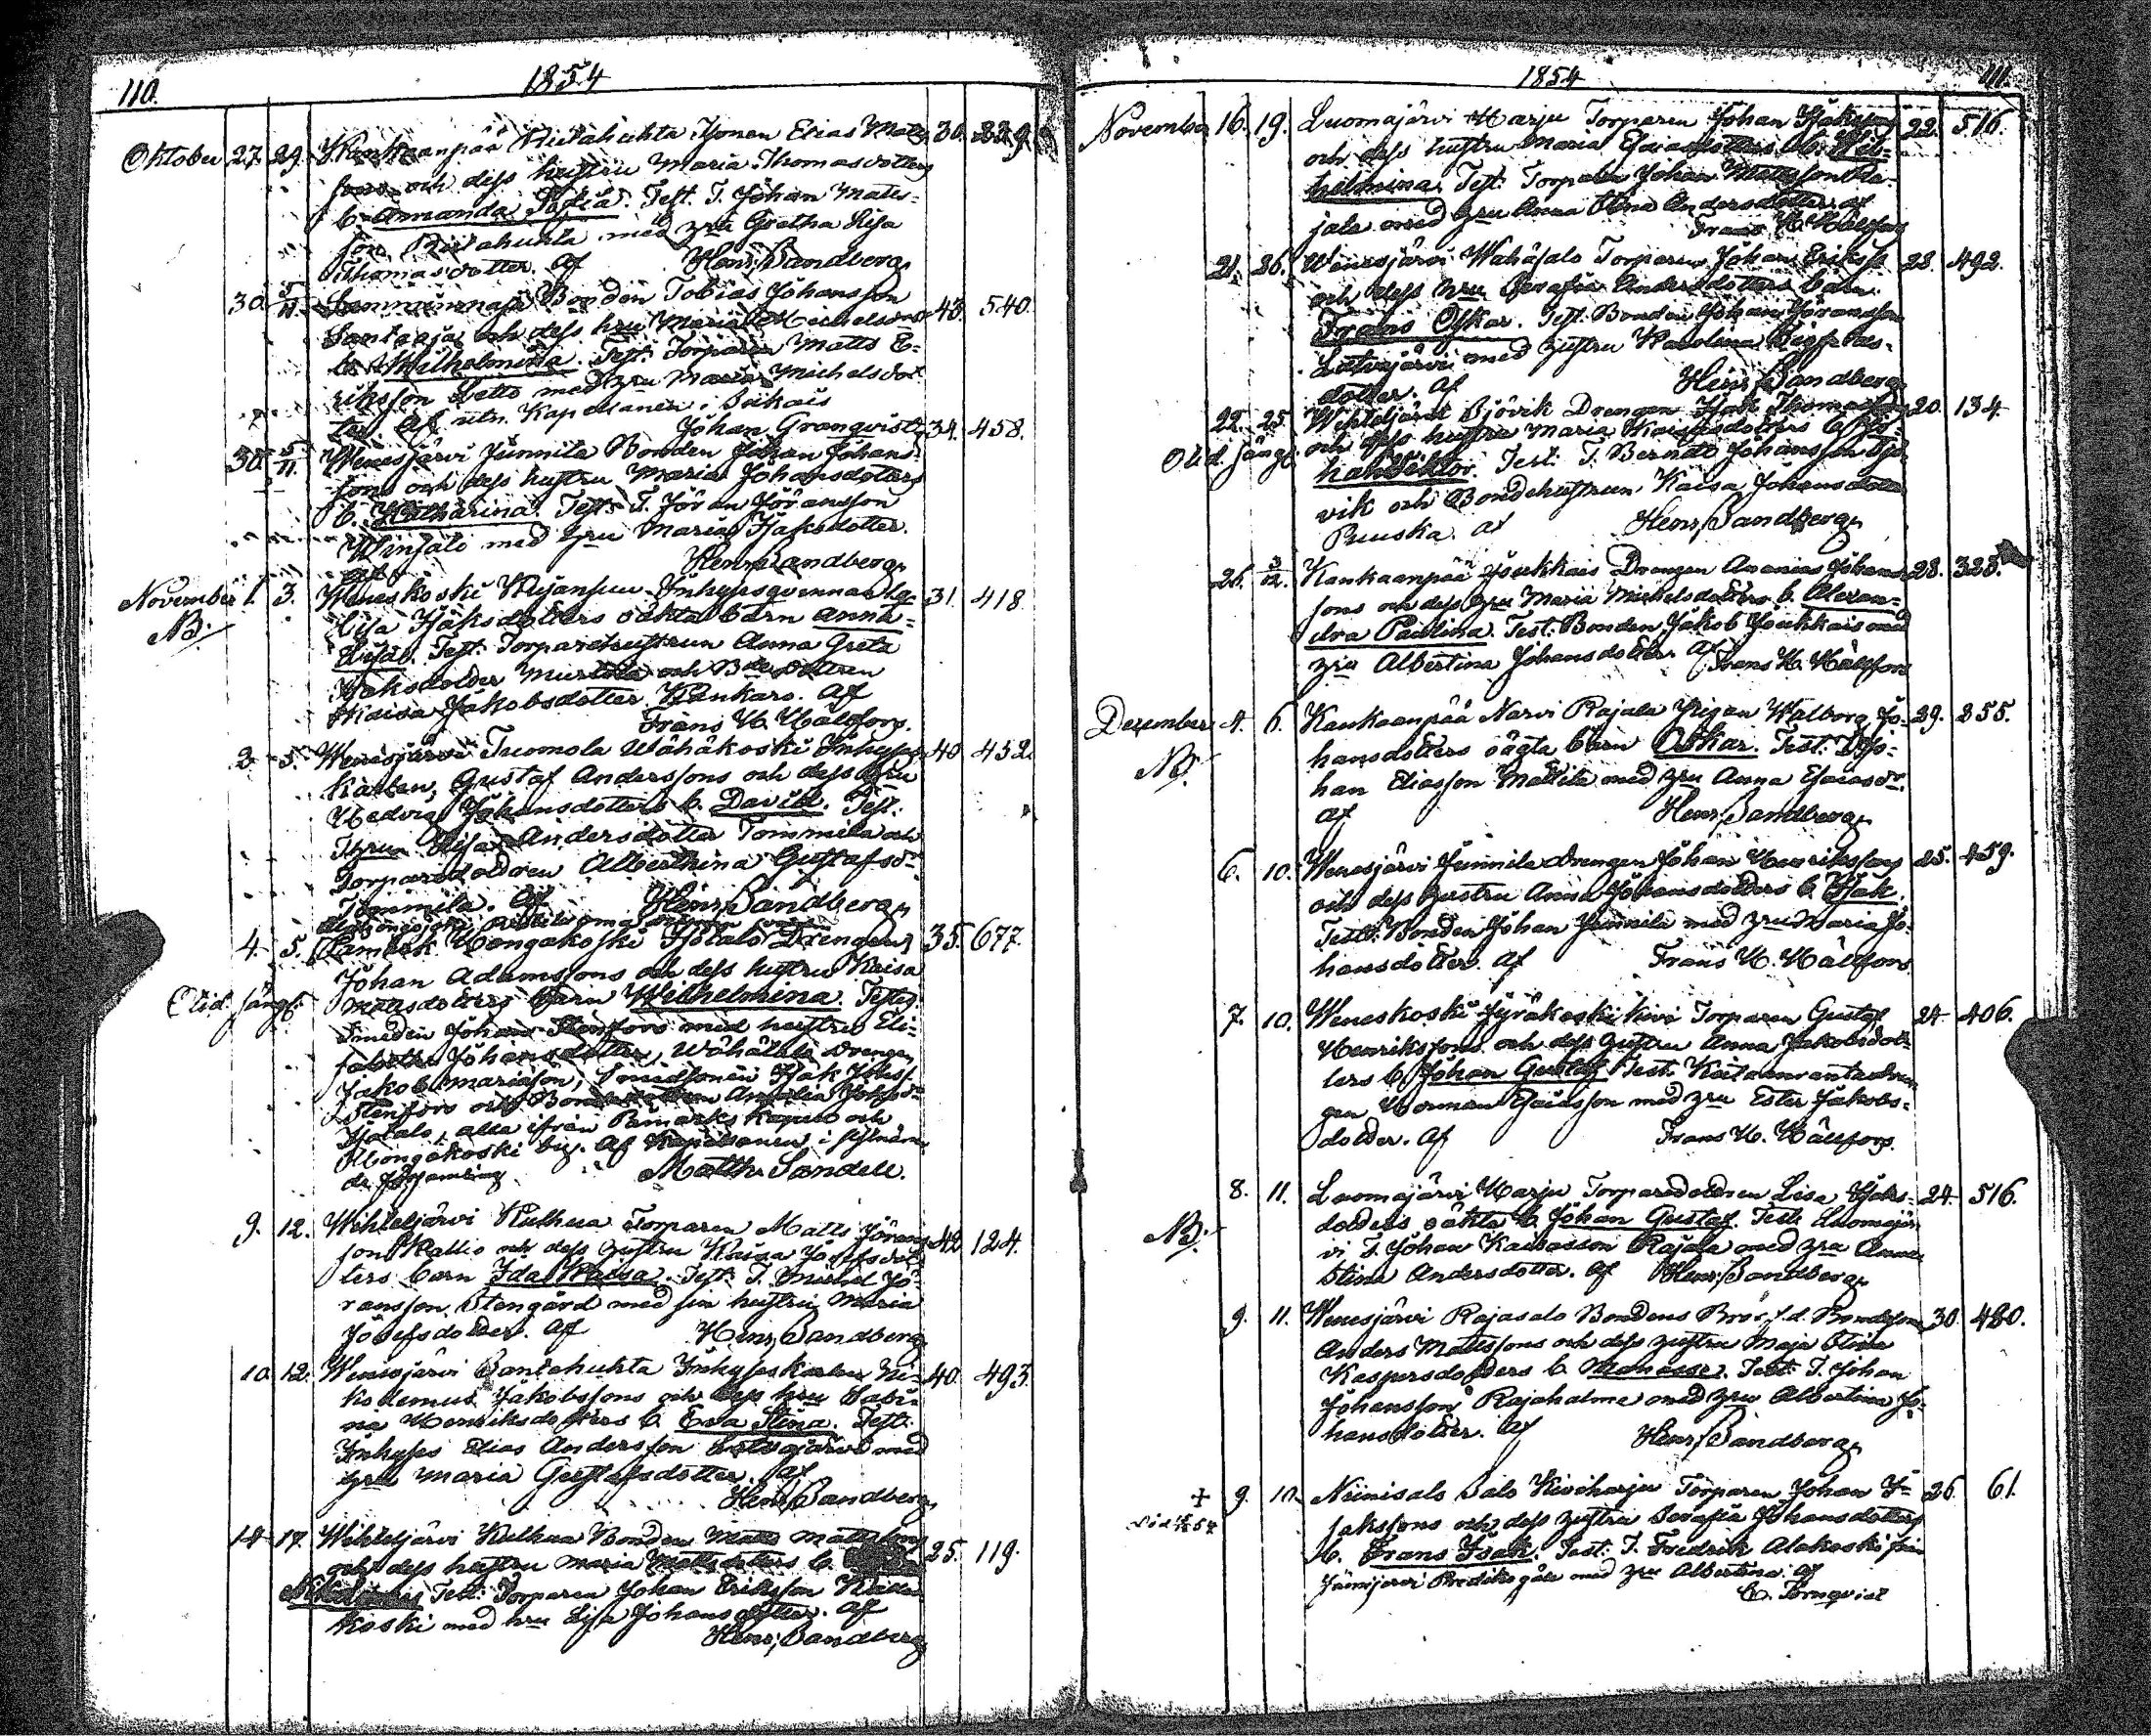 110. 1854
Oktober 27. 29. Kankaanpää Riitahuhta Sonen Elias Matts 30. 229.
sons och dess hustru Maria Thomasdotters
b. Amanda Sofia. Test. T. Johan Matts-
son Riitahuhta med hru Gretha Lisa
Thomasdotter. Af Henr. Sandberg
30. 5/11. Bonden Tobias Johansson 43. 540.
Santaoja och dess hru Maria Michelsdrs
b. Wilhelmina. Test: Torparen Matts E-
riksson Letto med hru Maria Michelsdot
ter. Af utn. Kapellanen i
Johan Granqvist
30. 5/11. Wenesjärvi Junnila Bonden Johan Johans- 34. 458.
sons och dess hustru Maria Johansdotters
b. Katharina. Test: T. Jöran Jöransson
med hru Maria Isaksdotter.
af Henr. Sandberg
November 1. 3. Weneskoski Inhysesqvinnan 31. 418.
NB. Lisa Isaksdotters oäkta barn Anna
Test: Torparehustrun Anna Greta
Isaksdotter och Bdedottren
Kaisa Jakobsdotter Af
Frans H. Hällfors.
2. 5. Wenesjärvi Tuomola Wähäkoski Inhyses- 40 452.
karlen, Gustaf Anderssons och dess hru
Hedvig Johansdotters b. David. Test.
Lisa Andersdotter Tommila och
Torparedottren Alberthina Gustafsdr
Tommila. Af Henr. Sandberg
4. 5. Hongakoski Isotalo Drengen 35. 677.
Johan Adamssons och dess hustru Kaisa
Otid. fängl. Mattsdotters barn Wilhelmina. Testes
Smeden Johan Stenfors med hustru Eli-
sabetha Johansdotter, Wähätalo Drengen
Jakob Mariason, Smedsonen Isak Johss.
Stenfors och Amalia Johsdr
Isotalo, alla ifrån Påmarks Kapell och
Hongakoski by. Af Kapellanen i
de församling Matth. Sandell.
9. 12. Wihteljärvi Kulhua Torparen Matts Jörans 42 124.
son Kallio och dess hustru Kaisa Josefsdot
ters barn Ida Kaisa. Test. T. Michel Jö-
ransson Stengård med sin hustru Maria
Josefsdotter. Af Henr. Sandberg
10. 12. Wenesjärvi Santahuhta Inhyseskarlen Ni- 40. 493.
kodemus Jakobssons och dess hru Sabi-
na Henriksdotters b. Eva Stina. Test:
Inhyses Elias Andersson med
hru Maria Gustafsdotter. af
Henr. Sandberg
14. 17. Wihteljärvi Kulhua Bonden Matts Mattssons 25. 119.
och dess hustru Maria Mattsdotters b.
Test: Torparen Johan Eriksson
koski med hru Lisa Johansdotter. af
Henr. Sandberg
1854 111.
November 16. 19. Luomajärvi Harju Torparen Johan Isaksons 22. 516.
och dess hustru Maria Esaiasdotters b. Wil-
helmina. Test: Torparen Johan Mattsson Ra-
jala med hru Anna Stina Andersdotter. af
Frans H. Hällfors
21. 26. Wenesjärvi Wähäsalo Torparen Johan Erikss. 28. 492.
och dess hru Serafia Andersdotters barn
Frans Oskar. Test. Bonden Johan Jöransson
Latvajärvi med hustru Karolina
dotter. Af Henr. Sandberg
22. 25. Wihteljärvi Sjövik Drengen Isak Thomassons 20. 134.
Otid. fängl. och dess hustru Maria Kaisasdotters b. Jo-
han Viktor. Test: T. Berndt Johansson Sjö-
vik och Bondehustrun Kaisa Johansdotter
Puuska. af Henr. Sandberg
26. 3/12. Kankaanpää Joukkais Drengen Ananias Johans 28. 328.
sons och dess hru Maria Michelsdotters b. Alexan-
dra Paulina. Test: Bonden Jakob Joukkais med
hru Albertina Johansdotter. Af Frans H. Hällfors
December 4. 6. Kankaanpää Narvi Rajala Pigan Walborg Jo- 29. 255.
NB. hansdotters oägta barn Oskar. Test. T. Jo-
han Eliasson Mattila med hru Anna Esaiasdr.
af Henr. Sandberg
6. 10. Wenesjärvi Junnila Drengen Johan Henrikssons 25. 459.
och dess hustru Anna Johansdotters b. Isak.
Test: Bonden Johan Junnila med hru Maria Jo-
hansdotter. Af Frans H. Hällfors
7. 10. Weneskoski Jyräkoski kivi Torparen Gustaf 24. 406.
Henrikssons och dess hustru Anna Jakobsdot-
ters b. Johan Gustaf. Test. Drän-
gen Herman Esaiasson med hru Ester Jakobs-
dotter. Af Frans H. Hällfors.
8. 11. Luomajärvi Harju Torparedottren Lisa Isaks- 24. 516.
NB. dotters oäkta b. Johan Gustaf. Test. Luomajär
vi T. Johan Rajala med hru Anna
Stina Andersdotter. Af Henr. Sandberg
9. 11. Wenesjärvi Rajasalo Bondens Bror f.d. Bondeson 30. 480.
Anders Mattssons och dess hustru Maja Stina
Kaspersdotters b. Manasse. Test: T. Johan
Johansson Rajahalme med hru Albertina Jo-
hansdotter. Af Henr. Sandberg
+ 9. 10. Niinisalo Salo Kiviharju Torparen Johan I- 26. 61.
saksons och dess hustru Serafia Johansdotters
b. Frans Isak. Test: T. Fredrik Alakoski från
Jämijervi Prediksgäll med hru Albertina. af
C. Törnqvist